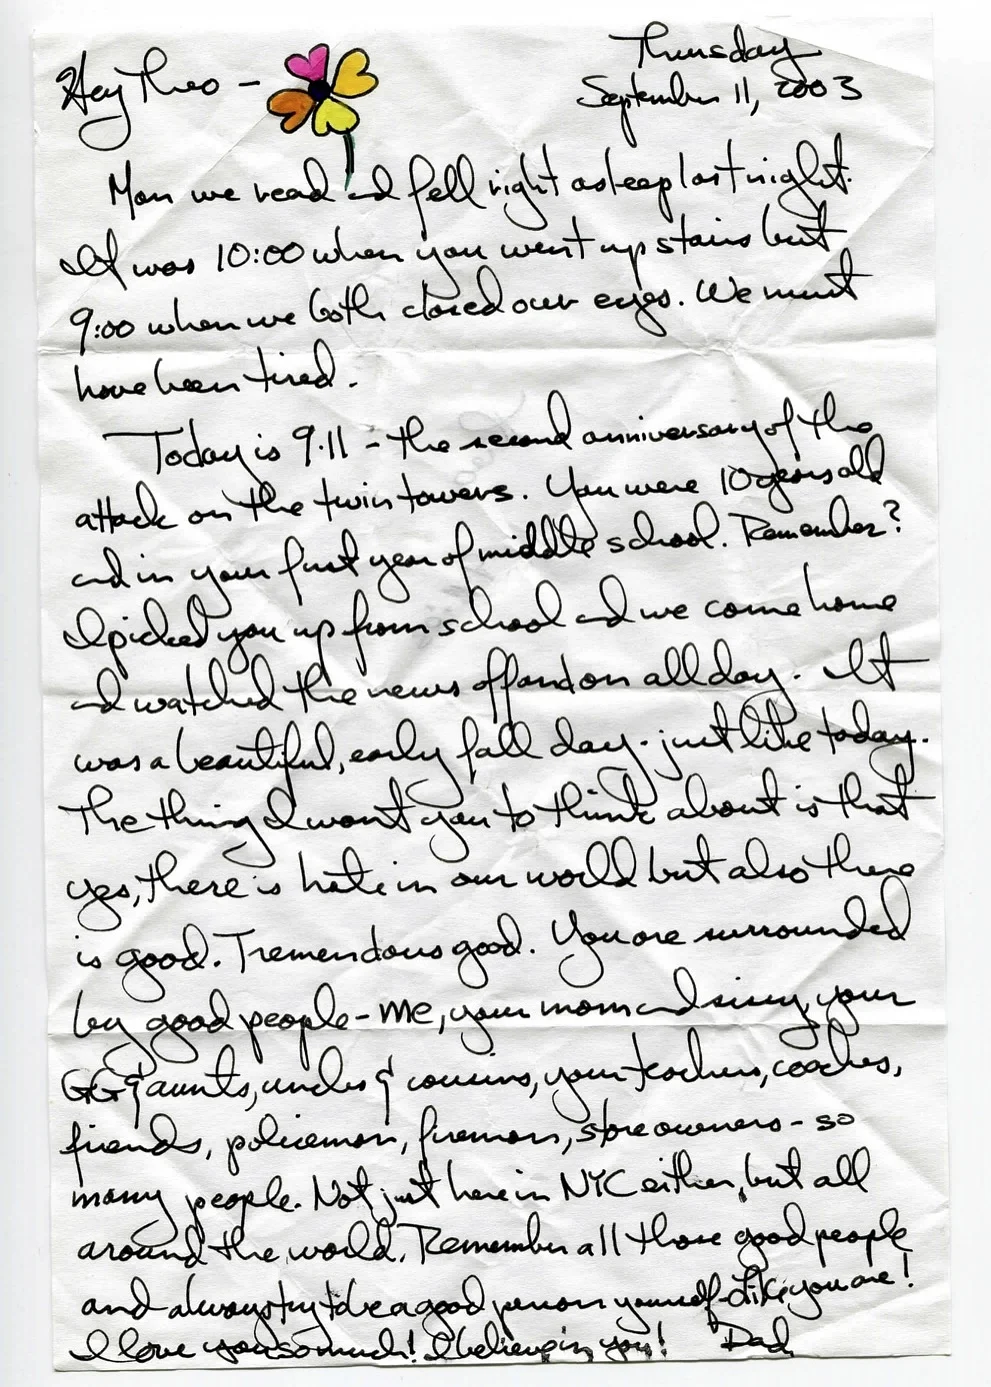 Hey Theo –
Thursday
September 11, 2003
Man we read and fell right asleep last night.
It was 10:00 when you went up stairs but
9:00 when we both closed our eyes. We must
have been tired.
Today is 9·11 – the second anniversary of the
attack on the twin towers. You were 10 years old
and in your first year of middle school. Remember?
I picked you up from school and we came home
and watched the news off and on all day. It
was a beautiful, early fall day - just like today.
The thing I want you to think about is that
yes, there is hate in our world but also there
is good. Tremendous good. You are surrounded
by good people – me, your mom and sissy, your
GG & aunts, uncles & cousins, your teachers, coaches,
friends, policemen, firemen, store owners – so
many people. Not just here in NYC either, but all
around the world. Remember all those good people
and always try to be a good person yourself - like you are!
I love you so much! I believe in you! Dad